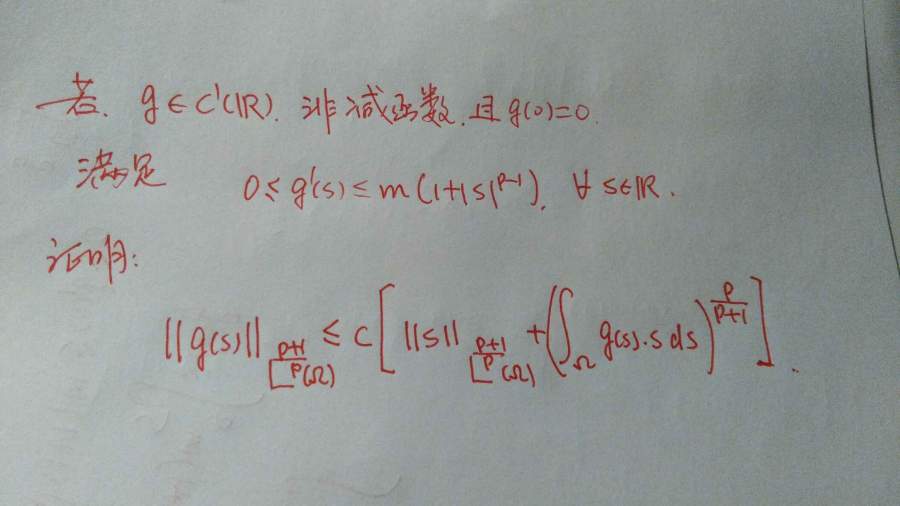 若. g∈C¹(ℝ). 非减函数. 且 g(0)=0.
满足 0≤g'(s)≤m(1+|s|^{p-1}). ∀ s∈ℝ.
证明:
||g(s)||_{L^{\frac{p+1}{p}}(Ω)} ≤ C[ ||s||_{L^{\frac{p+1}{p}}(Ω)} + (∫_Ω g(s)·s ds)^{\frac{p}{p+1}} ].